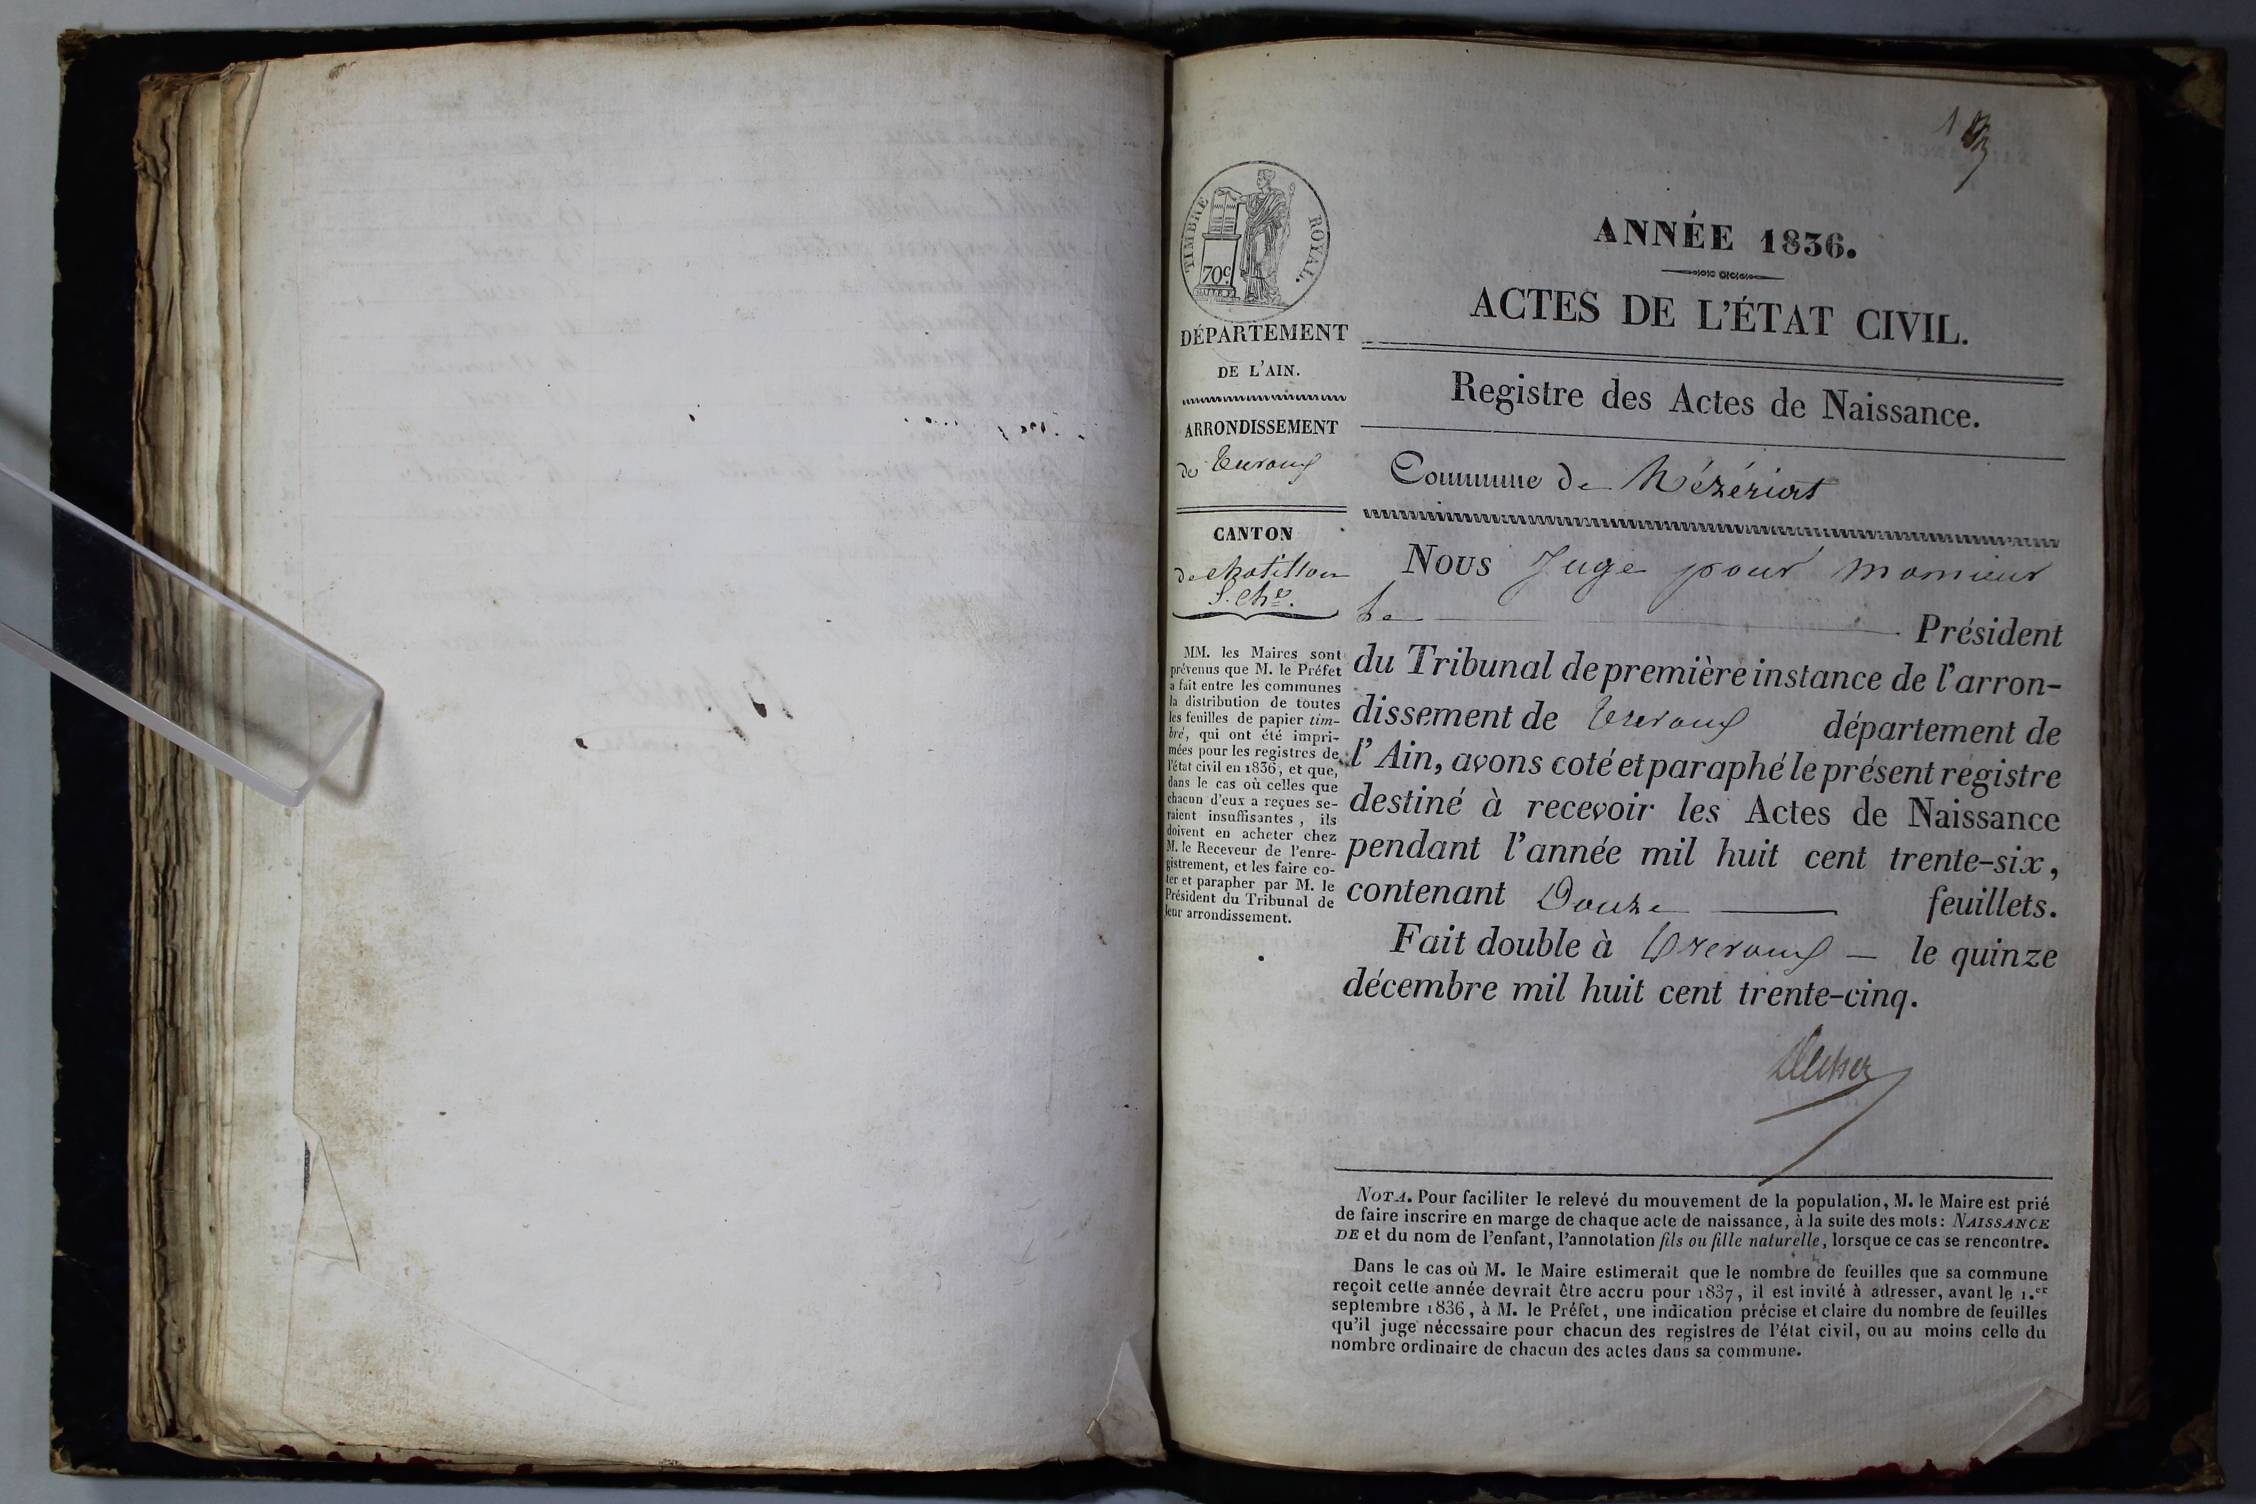 1
ANNÉE 1836.
ACTES DE L'ÉTAT CIVIL.
Registre des Actes de Naissance.
TIMBRE ROYAL.
70 c.
DÉPARTEMENT
DE L'AIN.
ARRONDISSEMENT
de Trevoux
CANTON
de chatillon
S. Ch.e
MM. les Maires sont
prévenus que M. le Préfet
a fait entre les communes
la distribution de toutes
les feuilles de papier tim-
bré, qui ont été impri-
mées pour les registres de
l'état civil en 1836, et que,
dans le cas où celles que
chacun d'eux a reçues se-
raient insuffisantes, ils
doivent en acheter chez
M. le Receveur de l'enre-
gistrement, et les faire co-
ter et parapher par M. le
Président du Tribunal de
leur arrondissement.
Commune de Mézériat
Nous Juge pour monsieur
Le Président
du Tribunal de première instance de l'arron-
dissement de Trevoux département de
l'Ain, avons coté et paraphé le présent registre
destiné à recevoir les Actes de Naissance
pendant l'année mil huit cent trente-six,
contenant Douze feuillets.
Fait double à Trevoux — le quinze
décembre mil huit cent trente-cinq.
NOTA. Pour faciliter le relevé du mouvement de la population, M. le Maire est prié
de faire inscrire en marge de chaque acte de naissance, à la suite des mots: NAISSANCE
DE et du nom de l'enfant, l'annotation fils ou fille naturelle, lorsque ce cas se rencontre.
Dans le cas où M. le Maire estimerait que le nombre de feuilles que sa commune
reçoit cette année devrait être accru pour 1837, il est invité à adresser, avant le 1.er
septembre 1836, à M. le Préfet, une indication précise et claire du nombre de feuilles
qu'il juge nécessaire pour chacun des registres de l'état civil, ou au moins celle du
nombre ordinaire de chacun des actes dans sa commune.